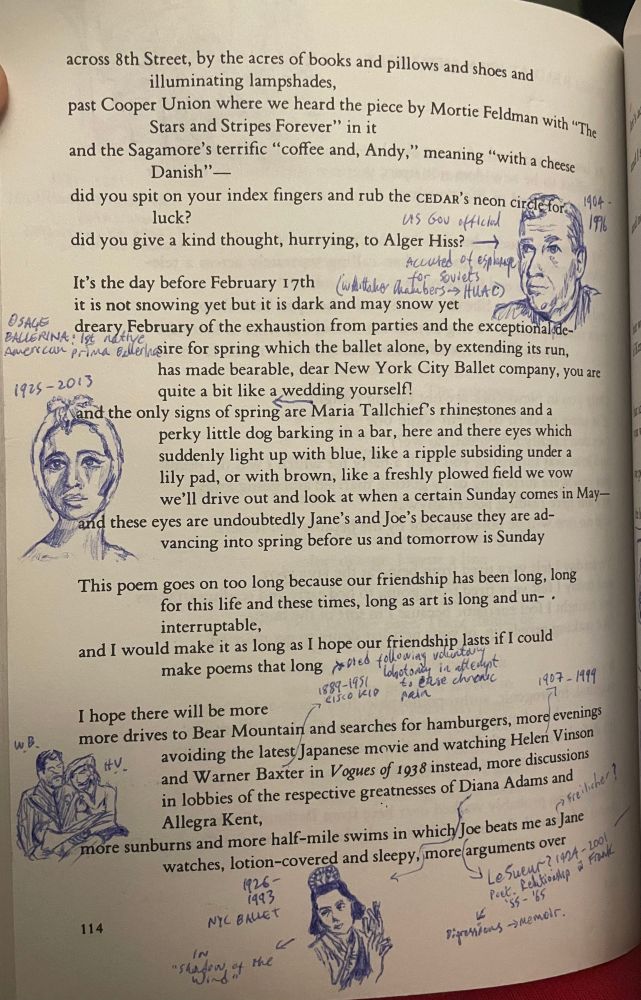 across 8th Street, by the acres of books and pillows and shoes and
illuminating lampshades,
past Cooper Union where we heard the piece by Mortie Feldman with "The
Stars and Stripes Forever" in it
and the Sagamore's terrific "coffee and, Andy," meaning "with a cheese
Danish"—
did you spit on your index fingers and rub the CEDAR's neon circle for
luck?
did you give a kind thought, hurrying, to Alger Hiss?
US Gov official
1904-
1996
Accused of espionage
for Soviets
(Whittaker Chambers → HUAC)
It's the day before February 17th
it is not snowing yet but it is dark and may snow yet
dreary February of the exhaustion from parties and the exceptional de-
sire for spring which the ballet alone, by extending its run,
has made bearable, dear New York City Ballet company, you are
quite a bit like a wedding yourself!
OSAGE
BALLERINA: 1st native
American prima ballerina
1925-2013
and the only signs of spring are Maria Tallchief's rhinestones and a
perky little dog barking in a bar, here and there eyes which
suddenly light up with blue, like a ripple subsiding under a
lily pad, or with brown, like a freshly plowed field we vow
we'll drive out and look at when a certain Sunday comes in May—
and these eyes are undoubtedly Jane's and Joe's because they are ad-
vancing into spring before us and tomorrow is Sunday
This poem goes on too long because our friendship has been long, long
for this life and these times, long as art is long and un-
interruptable,
and I would make it as long as I hope our friendship lasts if I could
make poems that long
Died following voluntary
lobotomy in attempt
to ease chronic
pain
1889-1951
CISCO KID
1907-1999
I hope there will be more
more drives to Bear Mountain and searches for hamburgers, more evenings
avoiding the latest Japanese movie and watching Helen Vinson
and Warner Baxter in Vogues of 1938 instead, more discussions
in lobbies of the respective greatnesses of Diana Adams and
Allegra Kent,
W.B.
H.V.
more sunburns and more half-mile swims in which Joe beats me as Jane
watches, lotion-covered and sleepy, more arguments over
Freilicher?
LeSueur? 1924-2001
Poet. Relationship w Frank
'55-'65
Digressions → memoir.
1926-
1993
NYC BALLET
IN
"Shadow of the
Wind"
114